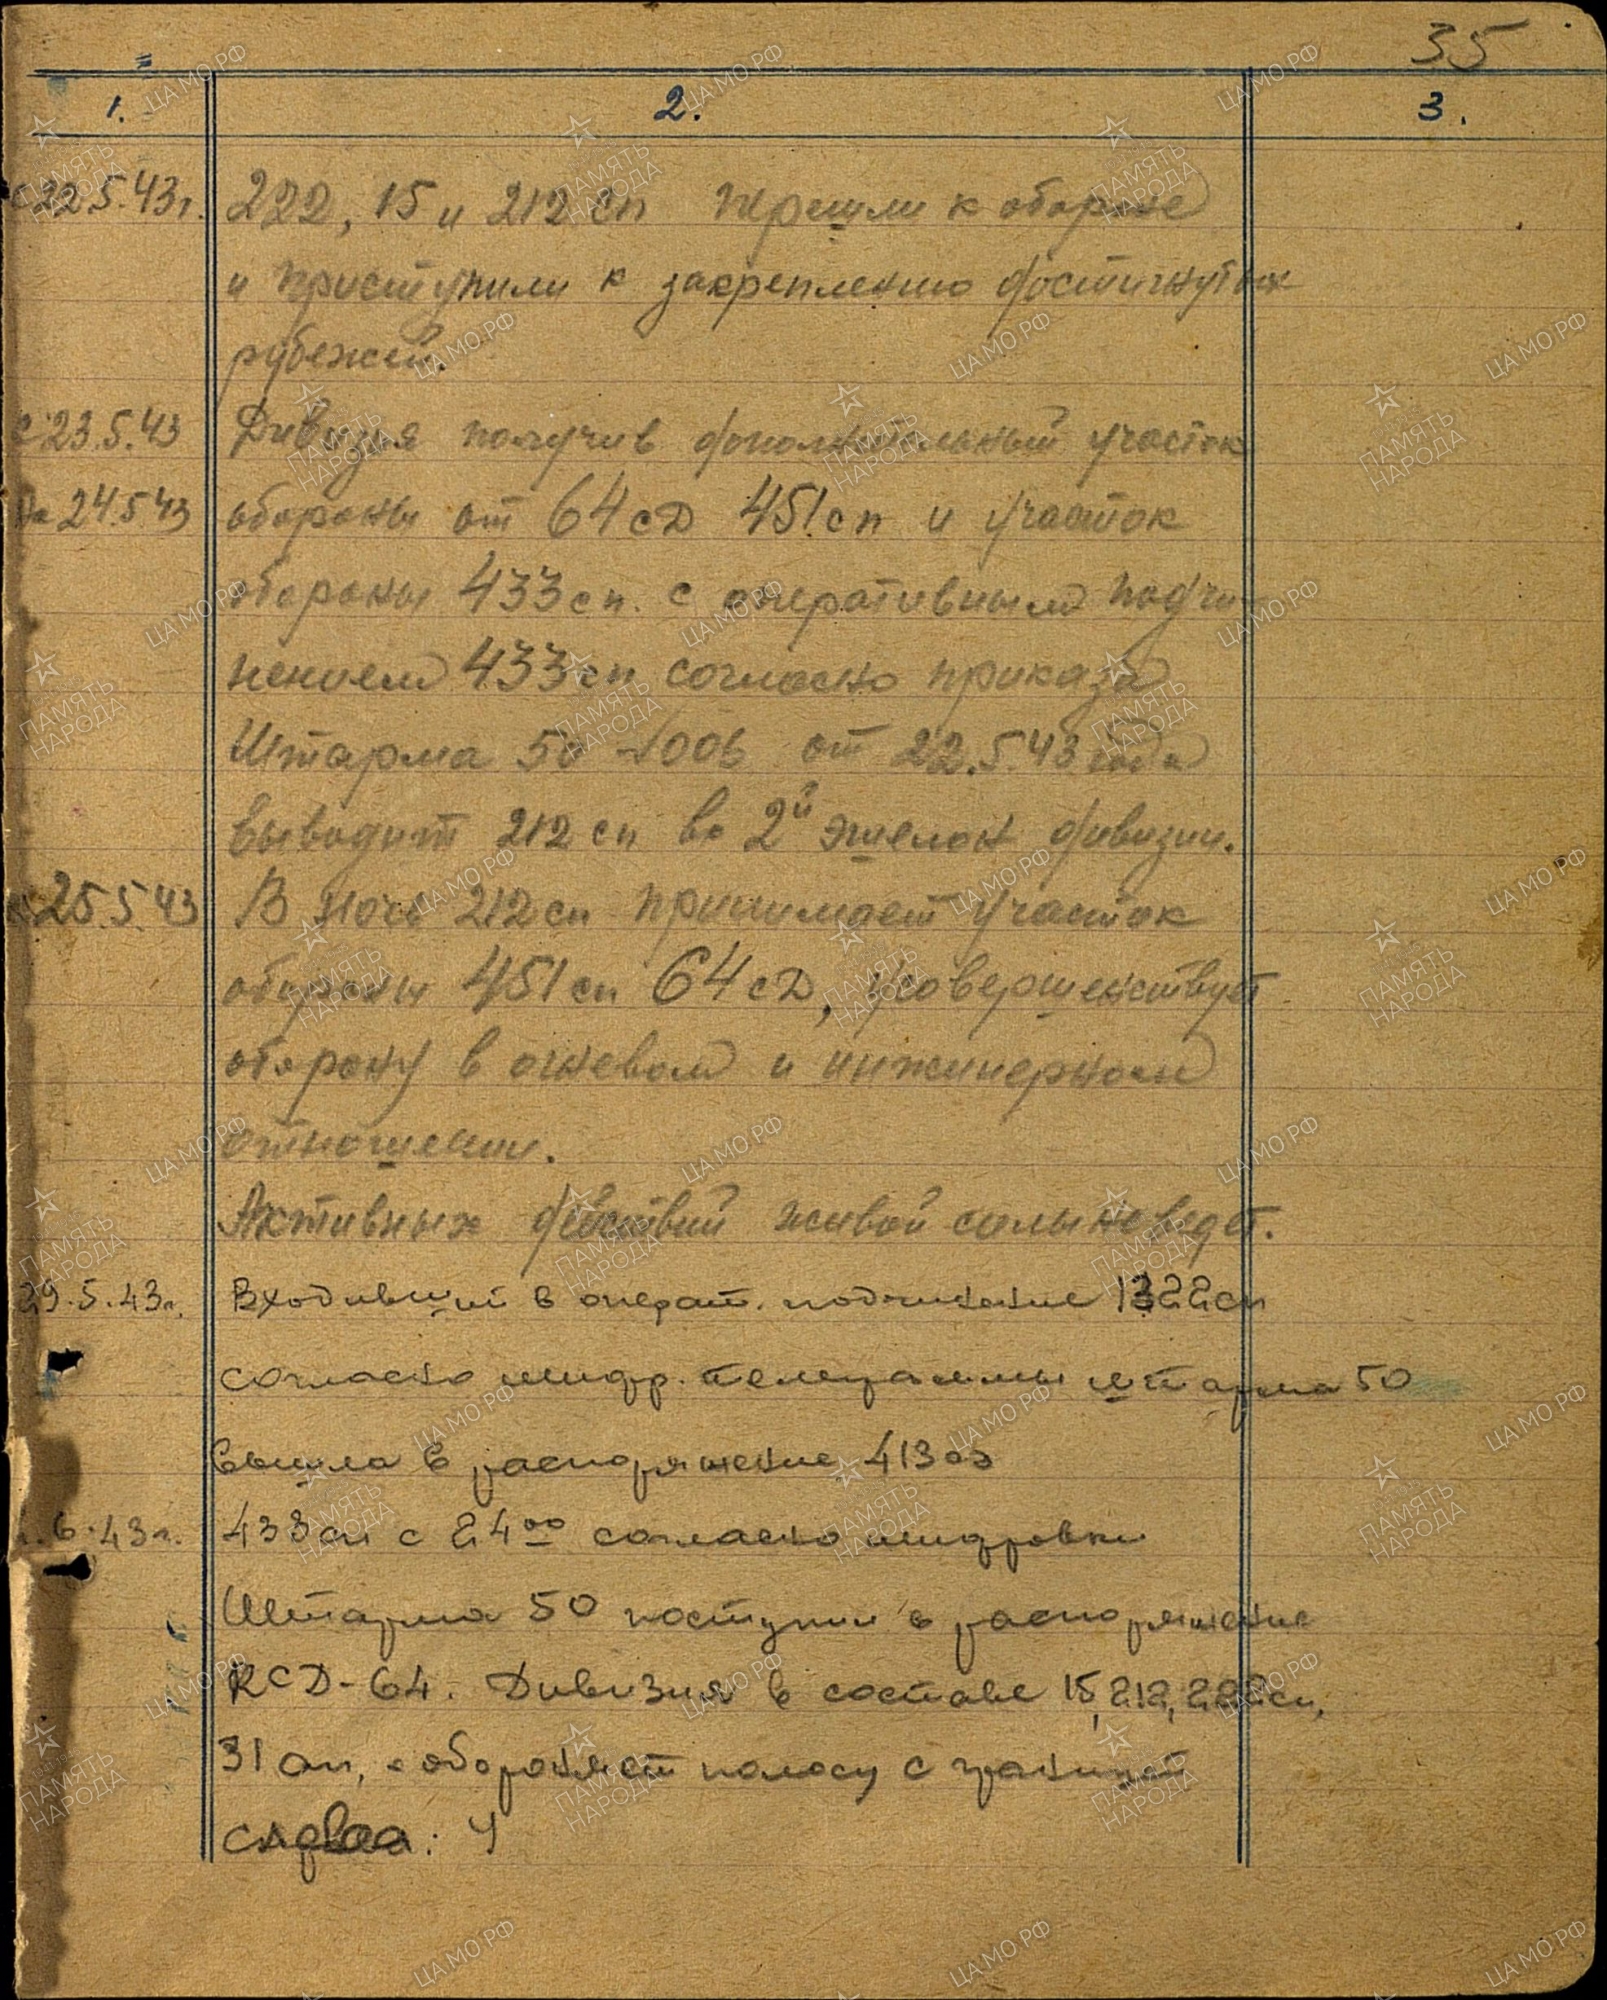 35
1. 2. 3.
с 22.5.43г. 222, 15 и 212 сп перешли к обороне
и приступили к закреплению достигнутых
рубежей.
с 23.5.43 Дивизия получив дополнительный участок
до 24.5.43 обороны от 64 сД 451 сп и участок
обороны 433 сп. с оперативным подчи-
нением 433 сп согласно приказа
Штарма 50 №006 от 22.5.43 года
выводит 212 сп во 2й эшелон дивизии.
25.5.43 В ночь 212 сп принимает участок
обороны 451 сп 64 сД, усовершенствует
оборону в огневом и инжинерном
отношении.
Активных действий живой силы не ведет.
29.5.43г. Входивший в операт. подчинение 1322 сп
согласно шифр. телеграммы штарма 50
вышла в распоряжение 413 сд
.6.43г. 433 сп с 2400 согласно шифровки
Штарма 50 поступил в распоряжение
КСД-64. Дивизия в составе 15, 212, 222 сп,
31 ап, обороняет полосу с границей
ЦА МО РФ
ПАМЯТЬ НАРОДА